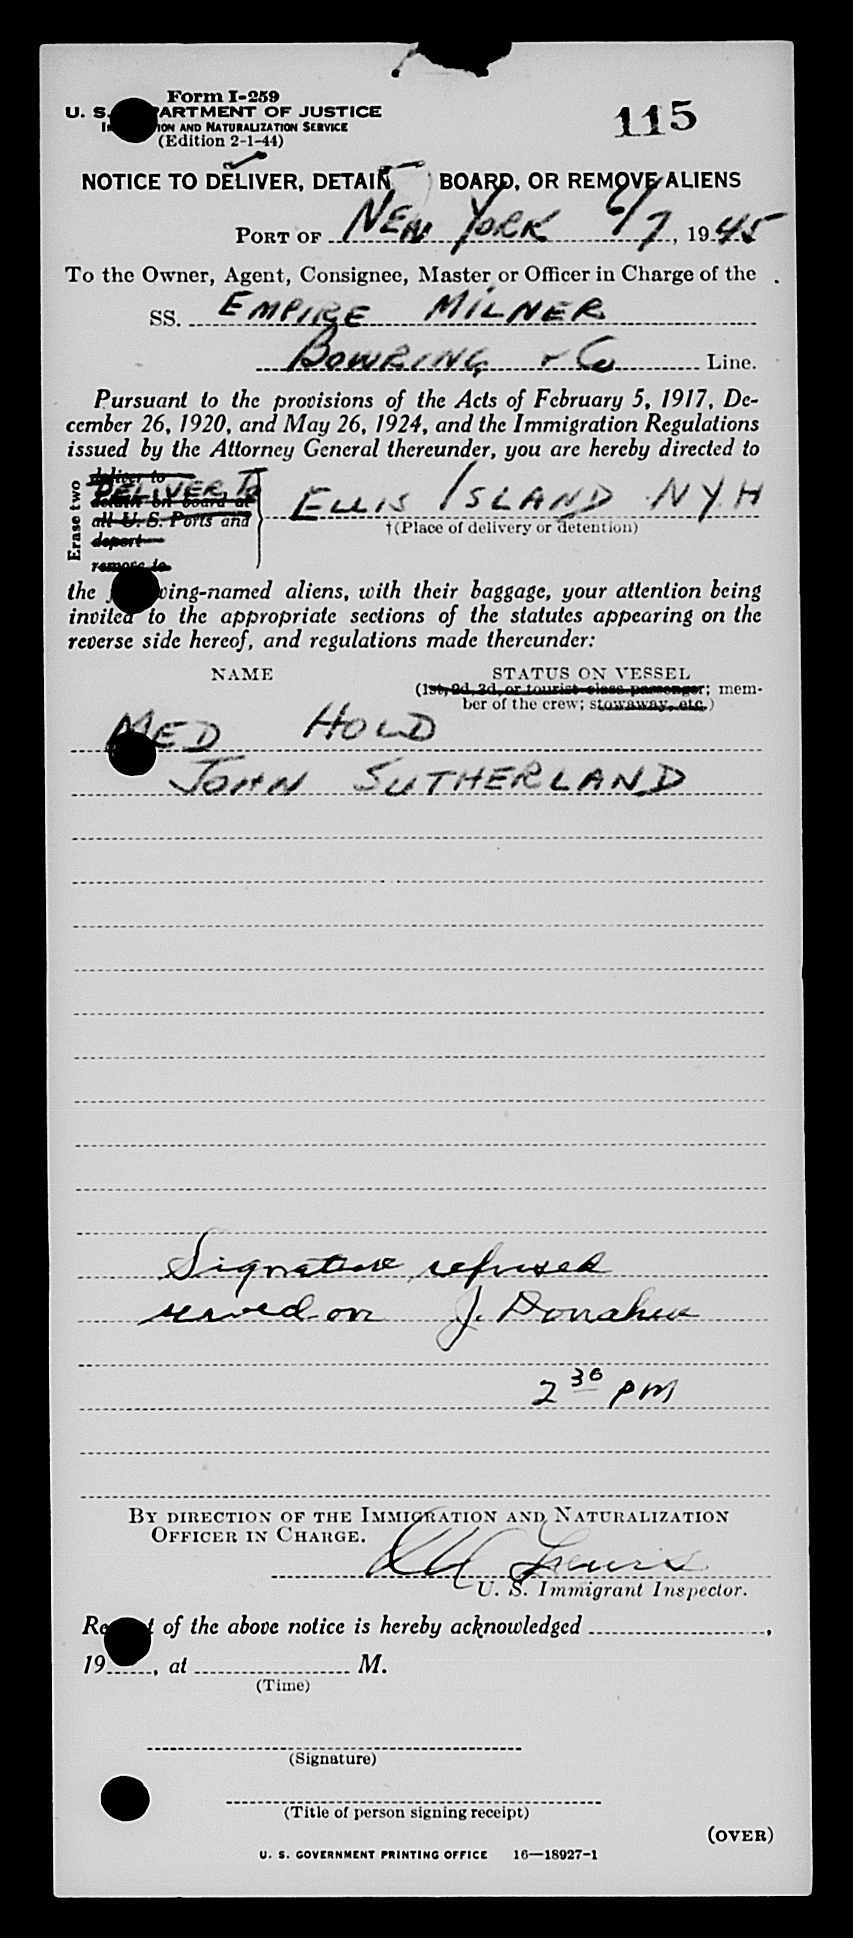 Form I-259
115
U. S. DEPARTMENT OF JUSTICE
ION AND NATURALIZATION SERVICE
(Edition 2-1-44)
NOTICE TO DELIVER, DETAIN BOARD, OR REMOVE ALIENS
PORT OF NEW YORK 6/7, 1945
To the Owner, Agent, Consignee, Master or Officer in Charge of the
SS. EMPIRE MILNER
BOWRING & Co Line.
Pursuant to the provisions of the Acts of February 5, 1917, De-
cember 26, 1920, and May 26, 1924, and the Immigration Regulations
issued by the Attorney General thereunder, you are hereby directed to
Erase two
deliver to
DELIVER TO
detain on board at
all U. S. Ports and
deport
remove to
ELLIS ISLAND NYH
†(Place of delivery or detention)
the wing-named aliens, with their baggage, your attention being
invited to the appropriate sections of the statutes appearing on the
reverse side hereof, and regulations made thereunder:
NAME STATUS ON VESSEL
(1st, 2d, 3d, or tourist class passenger; mem-
ber of the crew; stowaway, etc.)
MED HOLD
JOHN SUTHERLAND
Signature refused
served on J. Donahue
2 30 PM
BY DIRECTION OF THE IMMIGRATION AND NATURALIZATION
OFFICER IN CHARGE.
Lewis
U. S. Immigrant Inspector.
Receipt of the above notice is hereby acknowledged ,
19 , at M.
(Time)
(Signature)
(Title of person signing receipt)
(OVER)
U. S. GOVERNMENT PRINTING OFFICE 16—18927-1